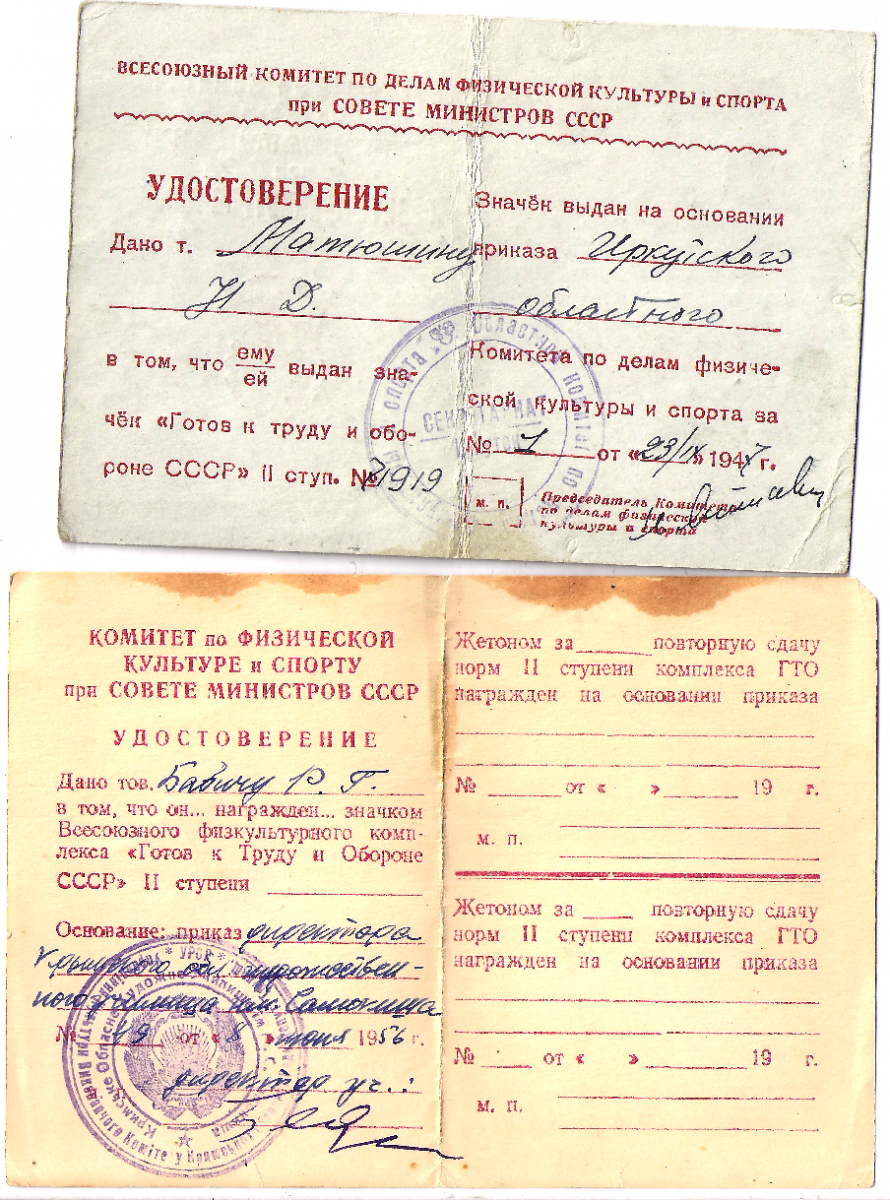 ВСЕСОЮЗНЫЙ КОМИТЕТ ПО ДЕЛАМ ФИЗИЧЕСКОЙ КУЛЬТУРЫ и СПОРТА
при СОВЕТЕ МИНИСТРОВ СССР
УДОСТОВЕРЕНИЕ
Дано т. Матюшину
Н Д.
в том, что ему
ей
выдан зна-
чёк «Готов к труду и обо-
роне СССР» II ступ. № 21919
Значёк выдан на основании
приказа Иркутского
областного
Комитета по делам физиче-
ской культуры и спорта за
№ 1 от «23/IX» 1947 г.
м. п.
Председатель Комитета
по делам физической
культуры и спорта
СЕКРЕТАРИАТ
КОМИТЕТ по ФИЗИЧЕСКОЙ
КУЛЬТУРЕ и СПОРТУ
при СОВЕТЕ МИНИСТРОВ СССР
УДОСТОВЕРЕНИЕ
Дано тов. Бабичу Р. Г.
в том, что он... награжден... значком
Всесоюзного физкультурного комп-
лекса «Готов к Труду и Обороне
СССР» II ступени
Основание: приказ директора
Крымского обл художествен-
ного училища им. Самокиша
№ 19 от «8» июня 1956 г.
директор уч.:
Жетоном за повторную сдачу
норм II ступени комплекса ГТО
награжден на основании приказа
№ от « » 19 г.
м. п.
Жетоном за повторную сдачу
норм II ступени комплекса ГТО
награжден на основании приказа
№ от « » 19 г.
м. п.